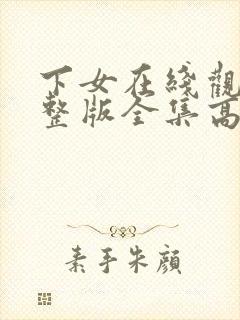 下女在綫觀
整版全集高
素手朱顔